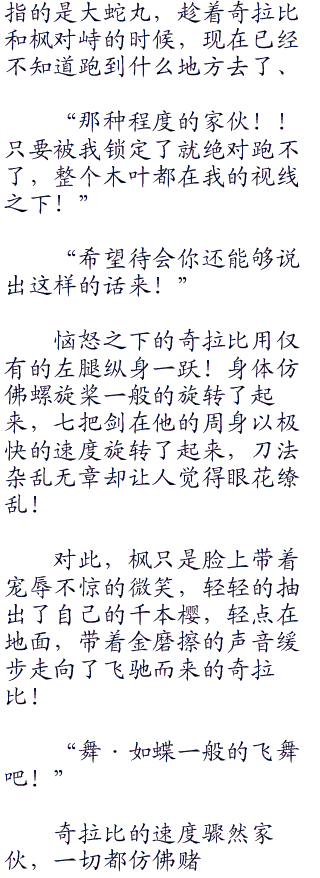 指的是大蛇丸，趁着奇拉比
和枫对峙的时候，现在已经
不知道跑到什么地方去了、
“那种程度的家伙！！
只要被我锁定了就绝对跑不
了，整个木叶都在我的视线
之下！”
“希望待会你还能够说
出这样的话来！”
恼怒之下的奇拉比用仅
有的左腿纵身一跃！身体仿
佛螺旋桨一般的旋转了起
来，七把剑在他的周身以极
快的速度旋转了起来，刀法
杂乱无章却让人觉得眼花缭
乱！
对此，枫只是脸上带着
宠辱不惊的微笑，轻轻的抽
出了自己的千本樱，轻点在
地面，带着金磨擦的声音缓
步走向了飞驰而来的奇拉
比！
“舞·如蝶一般的飞舞
吧！”
奇拉比的速度骤然家
伙，一切都仿佛赌